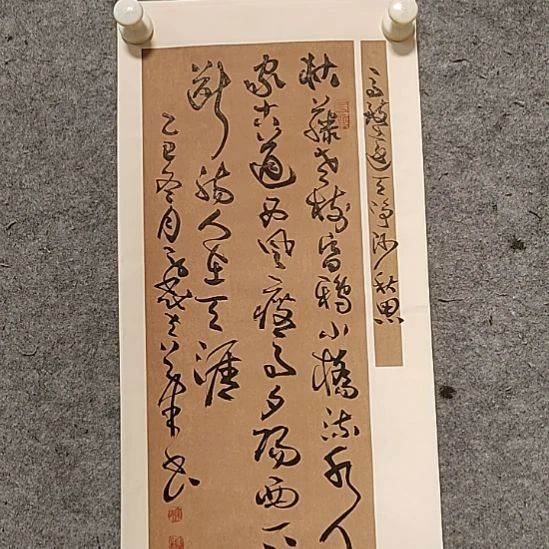 马致远天净沙秋思
枯藤老树昏鸦小桥流水人
家古道西风瘦马夕阳西下
断肠人在天涯
乙巳冬月 书